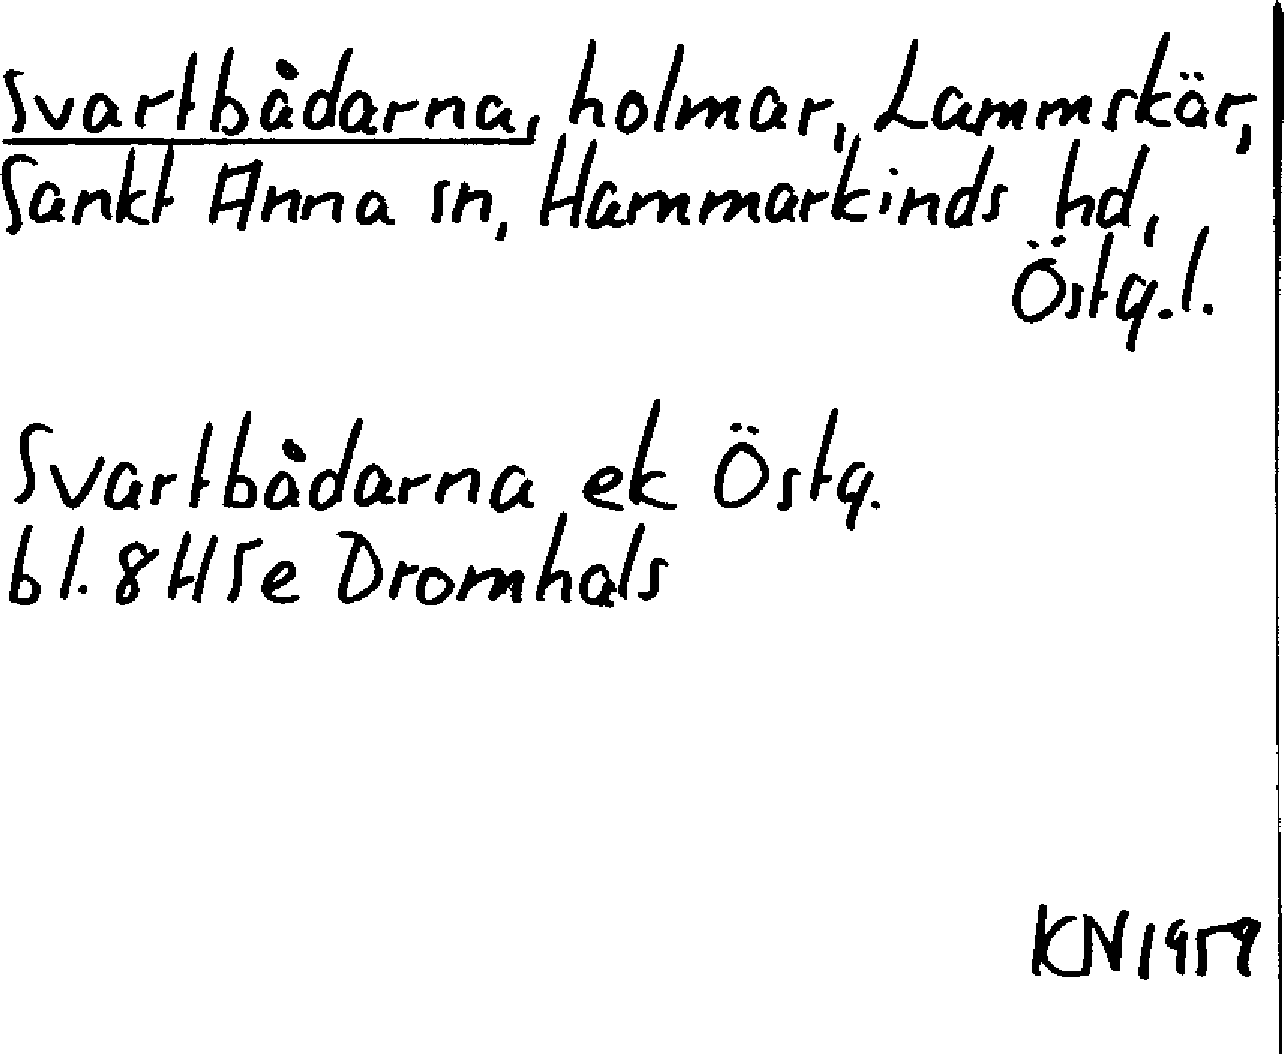 Svartbådarna, holmar, Lammskär,
Sankt Anna sn, Hammarkinds hd,
Östg.l.
Svartbådarna ek Östg.
bl. 8H5e Dromhals
KN1959